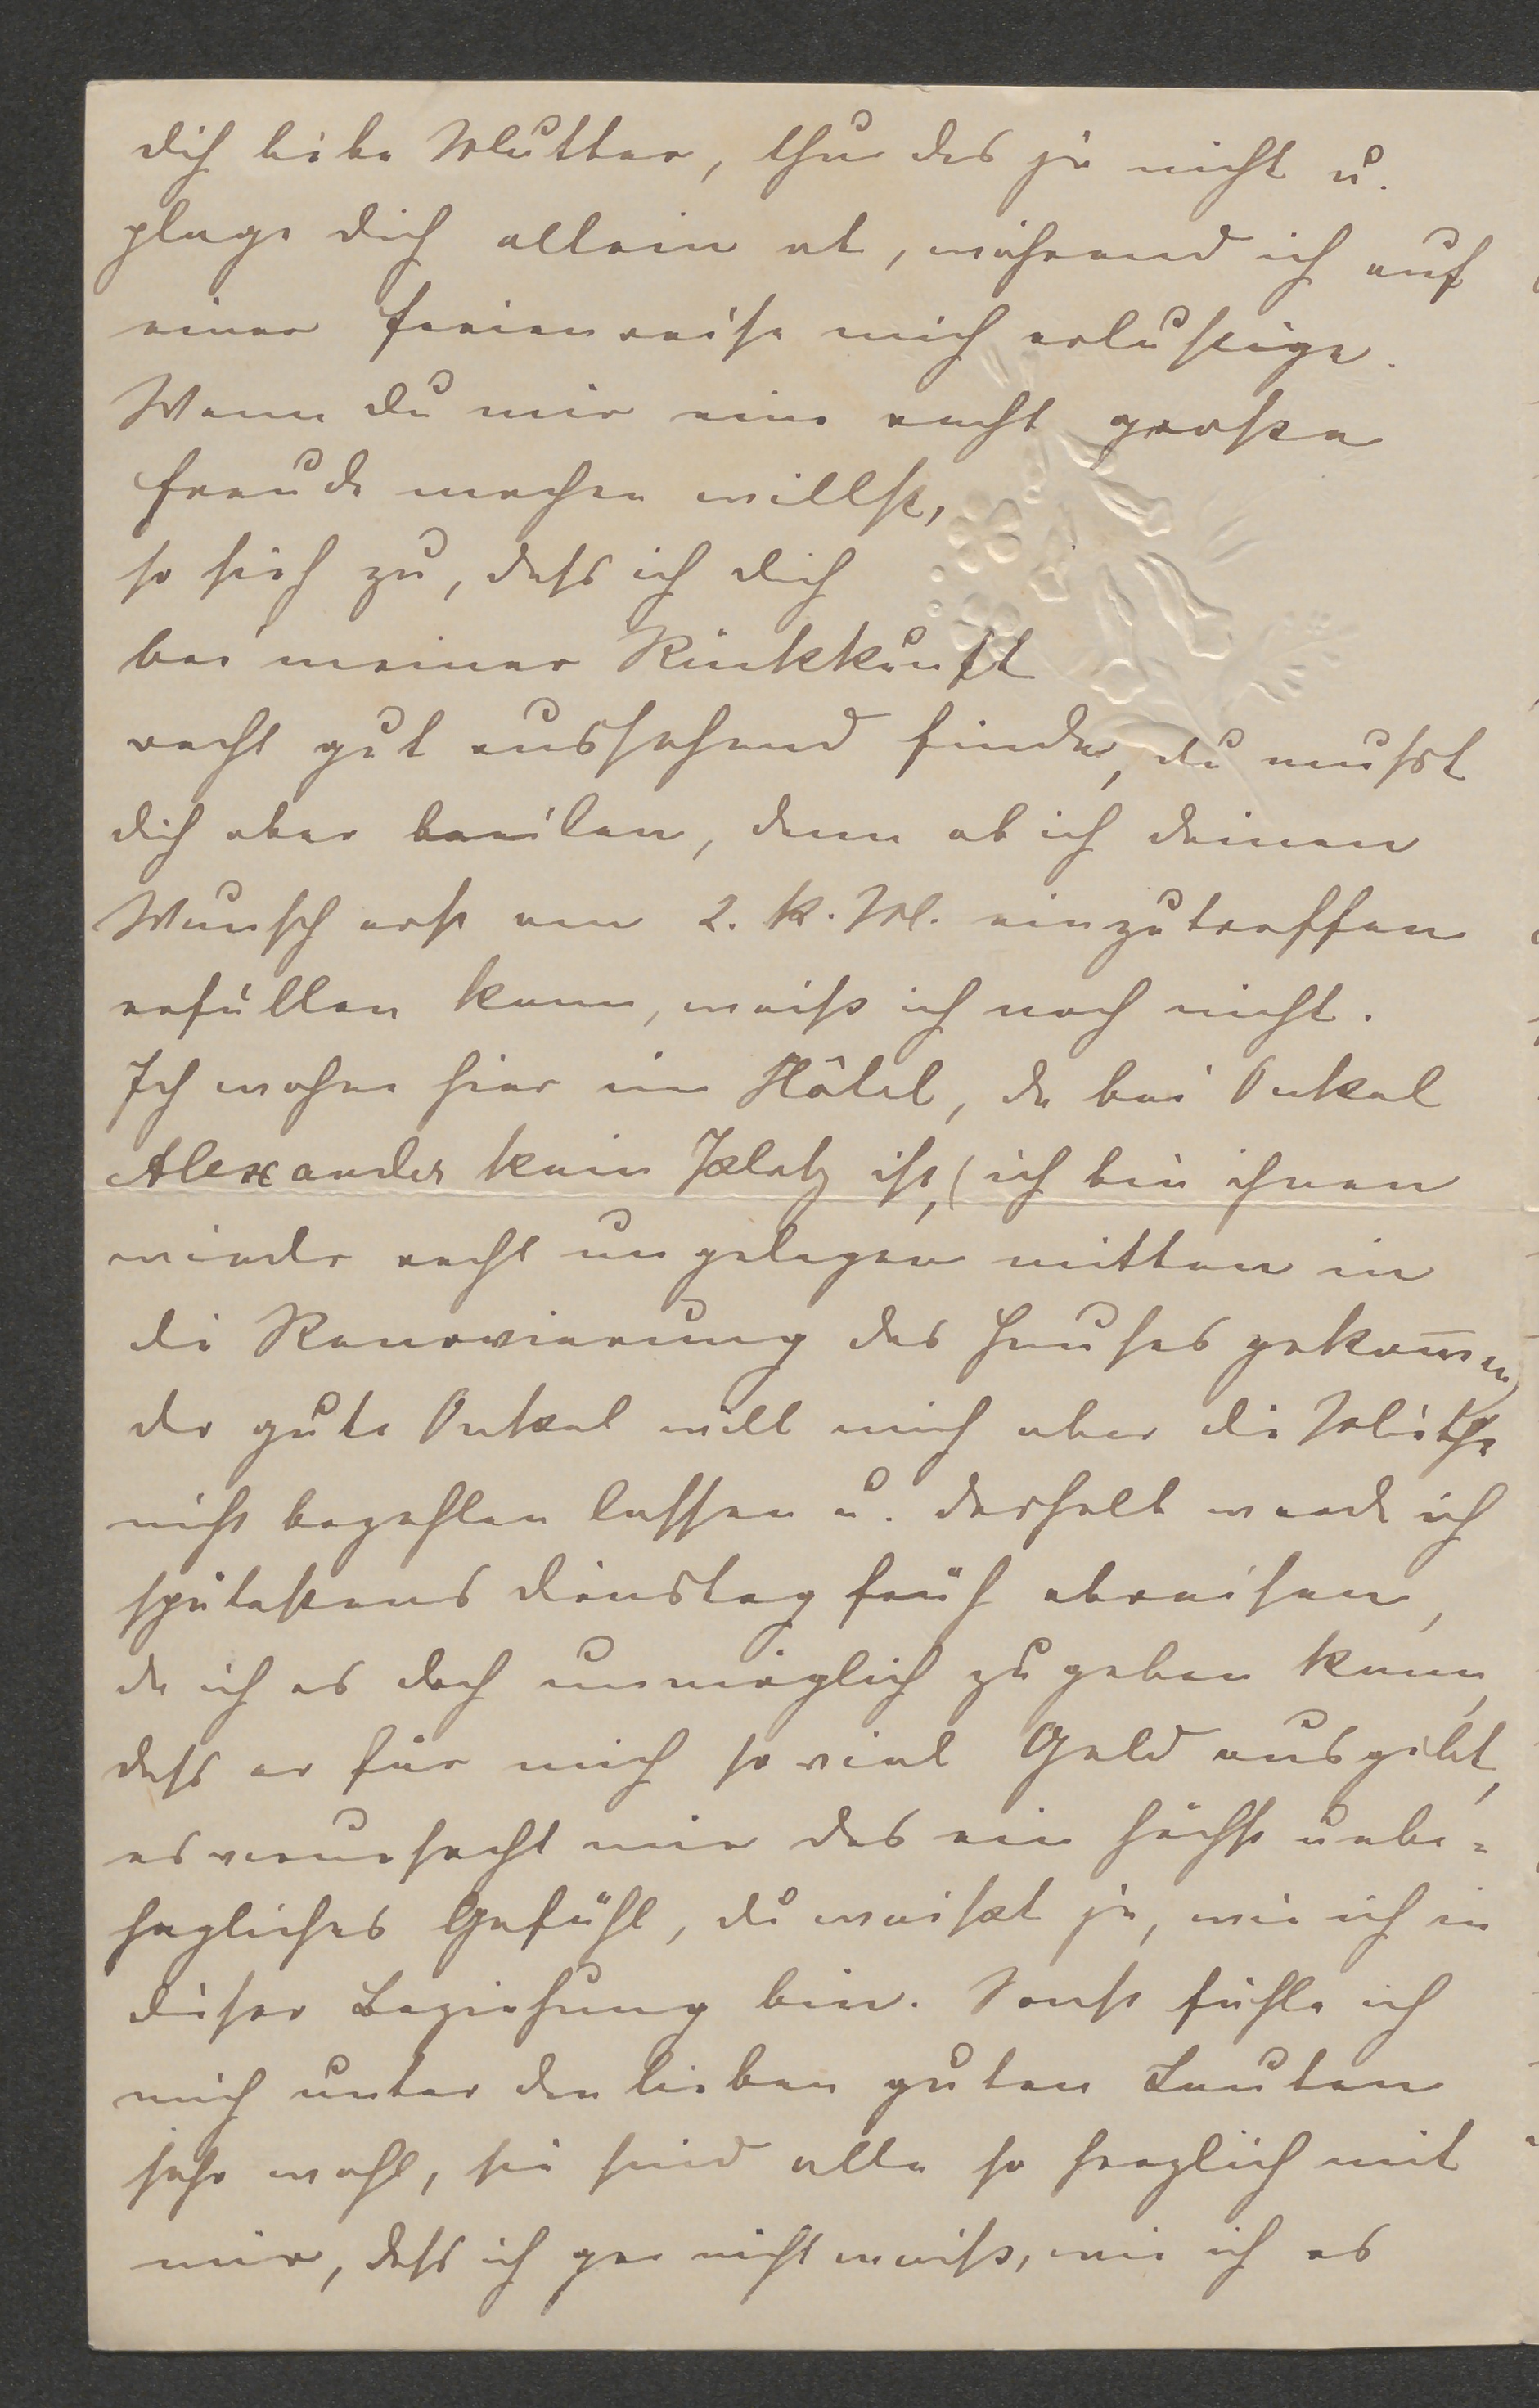 dich liebe Mutter, thu das ja nicht u.
plage dich allein ab, während ich auf
einer Ferienreise mich erlustige.
Wenn du mir eine recht große
Freude machen willst,
so sieh zu, dass ich dich
bei meiner Rückkunft
recht gut aussehend finde, du musst
dich aber beeilen, denn ob ich deinen
Wunsch erst am 2. k. M. einzutreffen
erfüllen kann, weiß ich noch nicht.
Ich wohne hier im Hôtel, da bei Onkel
Alexander kein Platz ist, (ich bin ihnen
wieder recht ungelegen mitten in
die Renovierung des Hauses gekom̅en)
der gute Onkel will mich aber die Miethe
nicht bezahlen lassen u. deshalb werde ich
spätestens Dienstag früh abreisen,
da ich es doch unmöglich zugeben kann,
dass er für mich so viel Geld ausgibt,
es verursacht mir das ein höchst unbe=
hagliches Gefühl, du weißt ja, wie ich in
dieser Beziehung bin. Sonst fühle ich
mich unter den lieben guten Leuten
sehr wohl, sie sind alle so herzlich mit
mir, dass ich gar nicht weiß, wie ich es